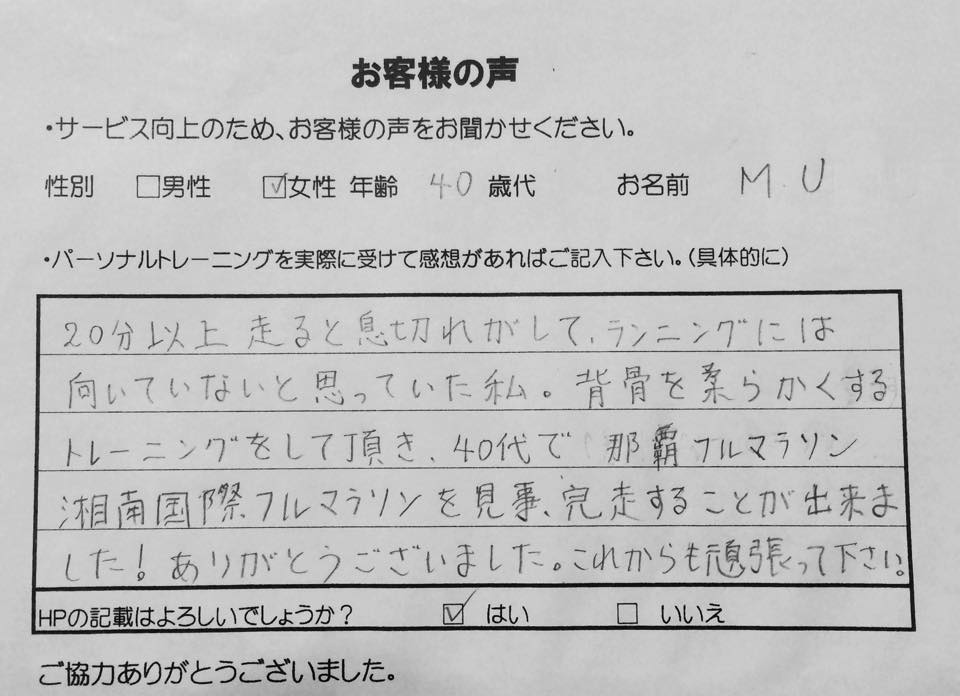 お客様の声
・サービス向上のため、お客様の声をお聞かせください。
性別 □男性 ☑女性 年齢 40 歳代 お名前 M U
・パーソナルトレーニングを実際に受けて感想があればご記入下さい。(具体的に)
20分以上 走ると息切れがして、ランニングには
向いていないと思っていた私。背骨を柔らかくする
トレーニングをして頂き、40代で 那覇フルマラソン
湘南国際フルマラソンを見事、完走することが出来ま
した!ありがとうございました。これからも頑張って下さい。
HPの記載はよろしいでしょうか? ☑ はい □ いいえ
ご協力ありがとうございました。